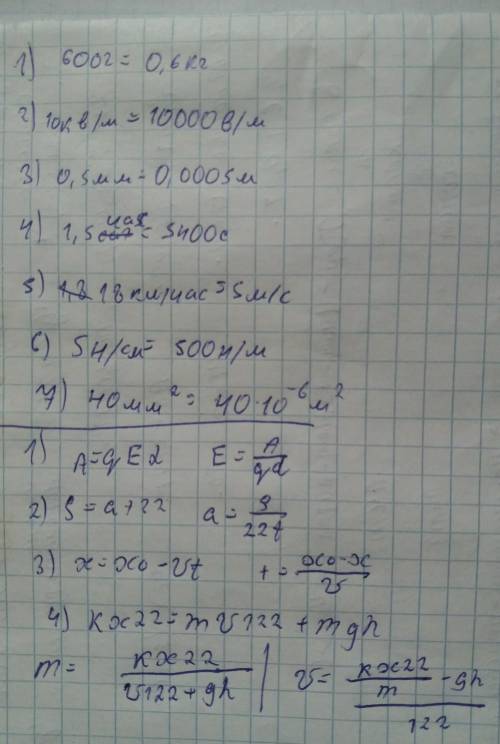 1) 600г = 0,6 кг
2) 10кв/м = 10000в/м
3) 0,5мм = 0,0005м
4) 1,5 час = 5400с
5) 18 км/час = 5м/с
6) 5Н/см = 500н/м
7) 40мм² = 40·10⁻⁶м²
1) A=qEd E = A/qd
2) S = at22 a = S/22t
3) x = x0 - vt t = x0-x/v
4) kx22 = mv122 + mgh
m = kx22/v122+gh | v = kx22/m - gh/122